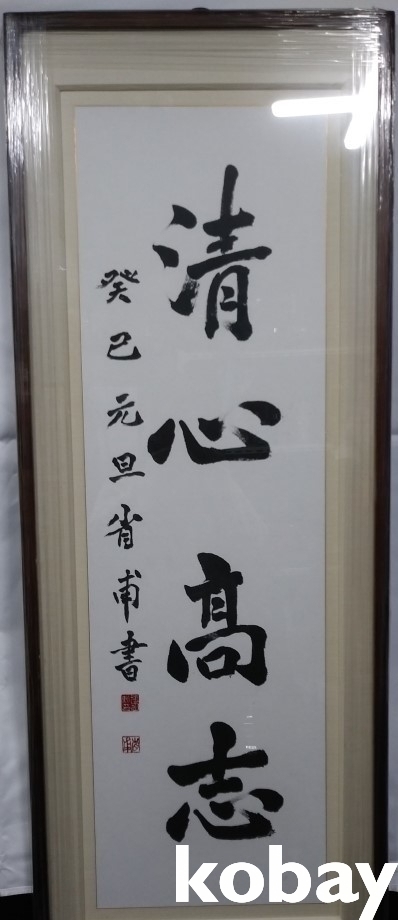 清心高志
癸巳元旦省甫書
kobay